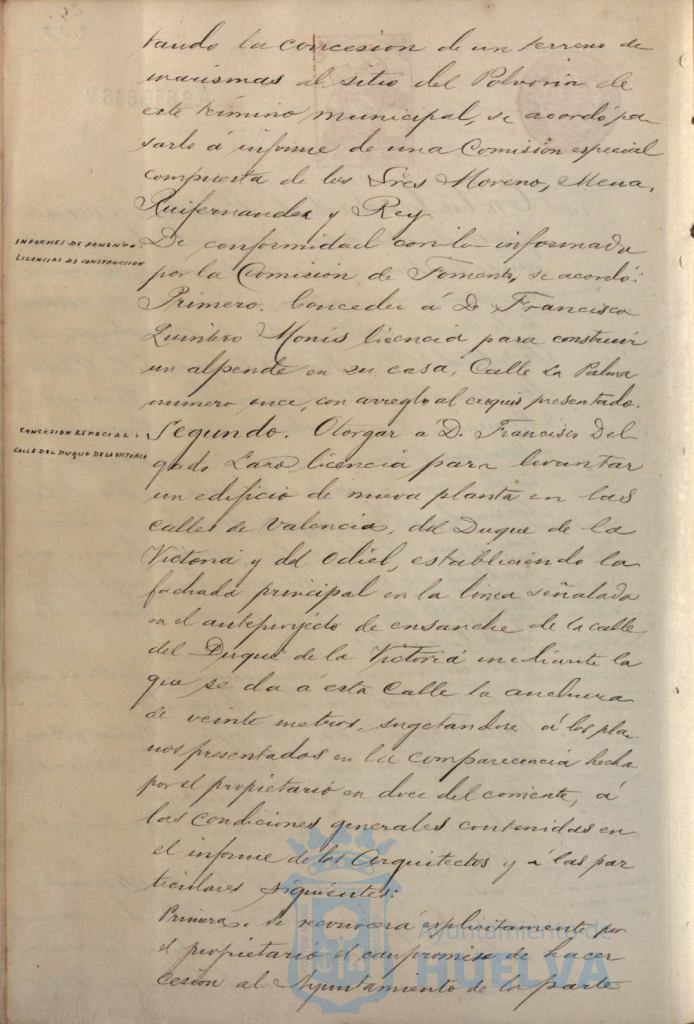 tando la concesion de un terreno de
marismas al sitio del Polvorin de
este término municipal, se acordó pa
sarlo á informe de una Comision especial
compuesta de los Sres Moreno, Mena,
Ruifernandez y Rey
INFORMES DE FOMENTO
LICENCIAS DE CONSTRUCCION
De conformidad con lo informado
por la Comision de Fomento, se acordó:
Primero. Conceder á D. Francisco
Quintero Monís licencia para construir
un alpende en su casa, Calle La Palma
numero once, con arreglo al croquis presentado.
CONCESION ESPECIAL:
CALLE DEL DUQUE DE LA VICTORIA
Segundo. Otorgar á D. Francisco Del
gado Lazo licencia para levantar
un edificio de nueva planta en las
calles de Valencia, del Duque de la
Victoria y del Odiel, estableciendo la
fachada principal en la linea señalada
en el anteproyecto de ensanche de la calle
del Duque de la Victoria mediante la
que se da á esta Calle la anchura
de veinte metros, sugetandose á los pla
nos presentados en la comparecencia hecha
por el propietario en doce del corriente, á
las condiciones generales contenidas en
el informe de los Arquitectos y á las par
ticulares siguientes:
Primera. Se reconocerá esplicitamente por
el propietario el compromiso de hacer
cesion al Ayuntamiento de la parte
Ayuntamiento de
HUELVA